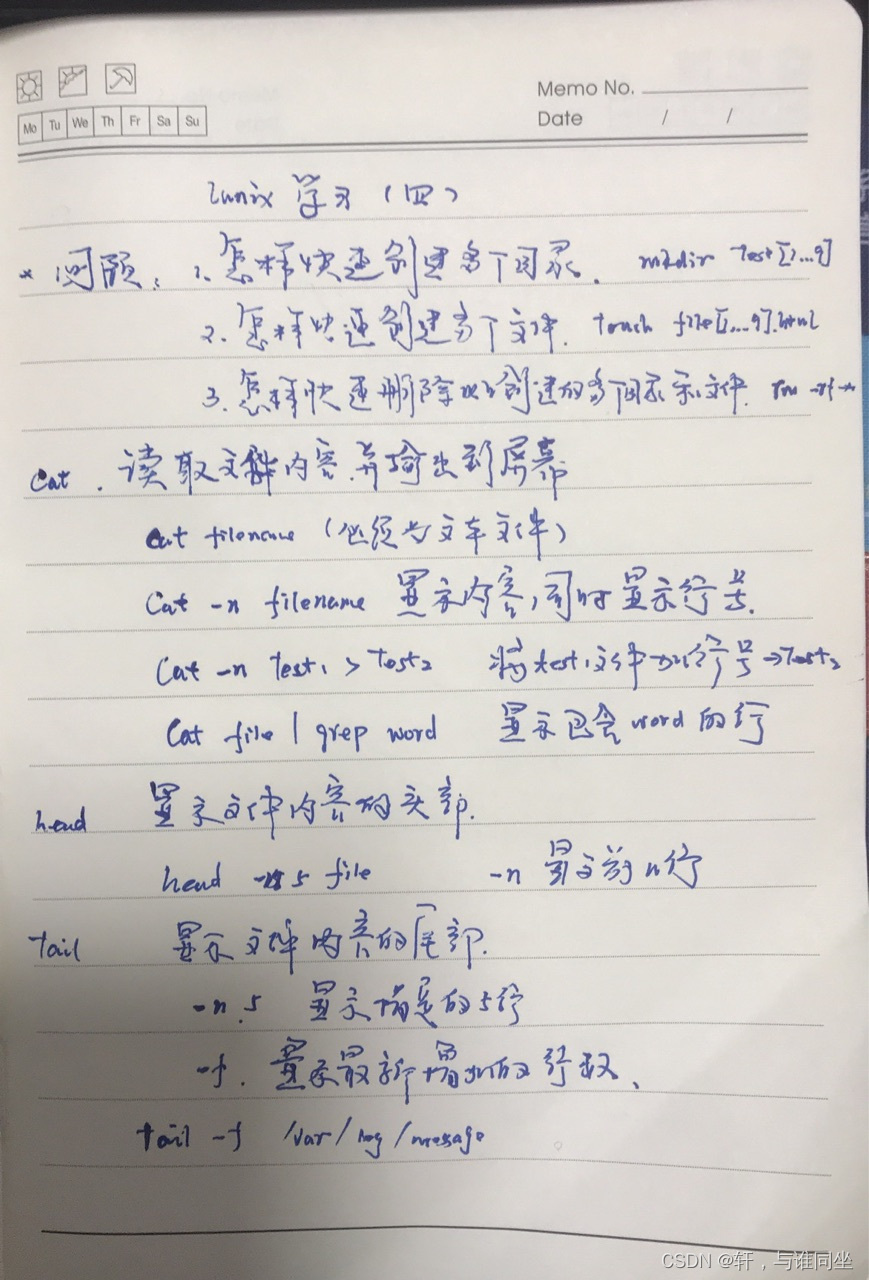 Memo No.
Mo Tu We Th Fr Sa Su
Date / /
Lunix 学习（四）
* 问题：1. 怎样快速创建多个目录. mkdir Test[1...9]
2. 怎样快速创建多个文件. touch file[1...9].html
3. 怎样快速删除以上创建的多个目录和文件. rm -rf *
cat . 读取文件内容.并输出到屏幕
cat filename （必须为文本文件）
Cat -n filename 显示内容,同时显示行号.
Cat -n Test1 > Test2 将test1文件加行号→Test2
Cat file | grep word 显示包含word的行
head 显示文件内容的头部.
head -n 5 file -n 显示前n行
Tail 显示文件内容的尾部.
-n 5 显示结尾的5行
-f. 显示最新增加的行数、
tail -f /var/log/message
CSDN @轩，与谁同坐